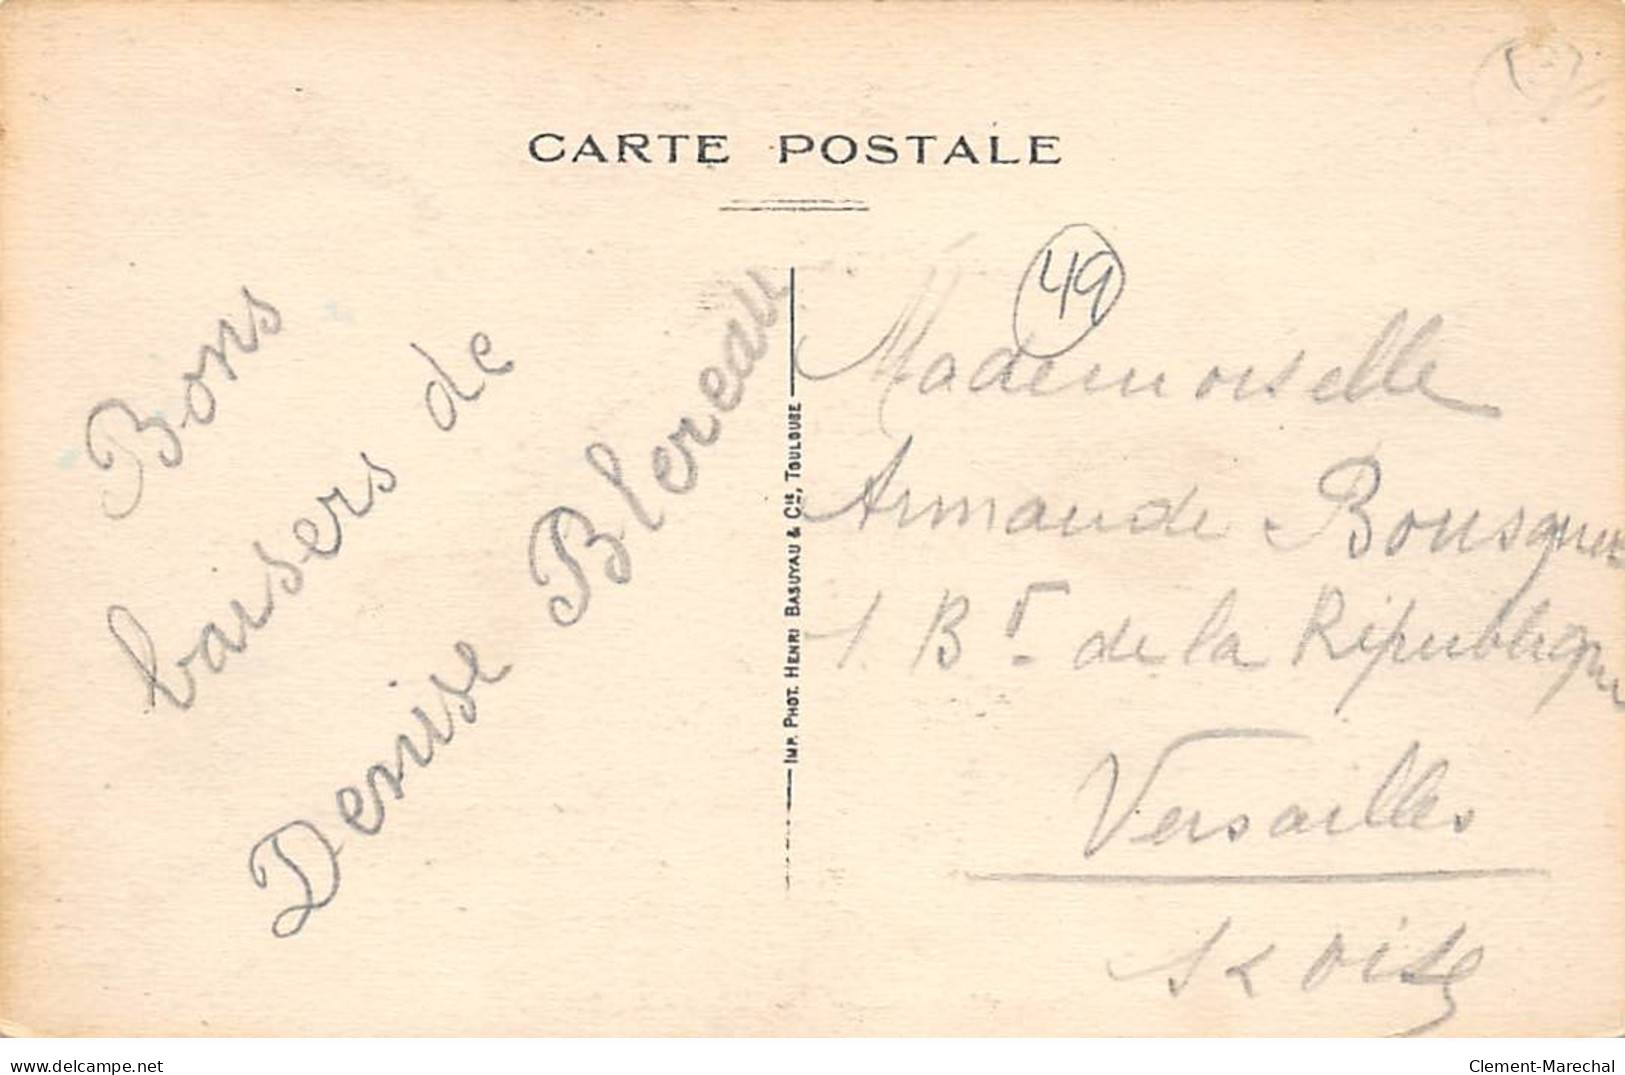 CARTE POSTALE
49
Bons
baisers de
Denise Blereau
IMP. PHOT. HENRI BASUYAU & Cie, TOULOUSE
Mademoiselle
Armande Bousquet
1. Bd de la République
Versailles
S & Oise
delcampe.net
Clement-Marechal